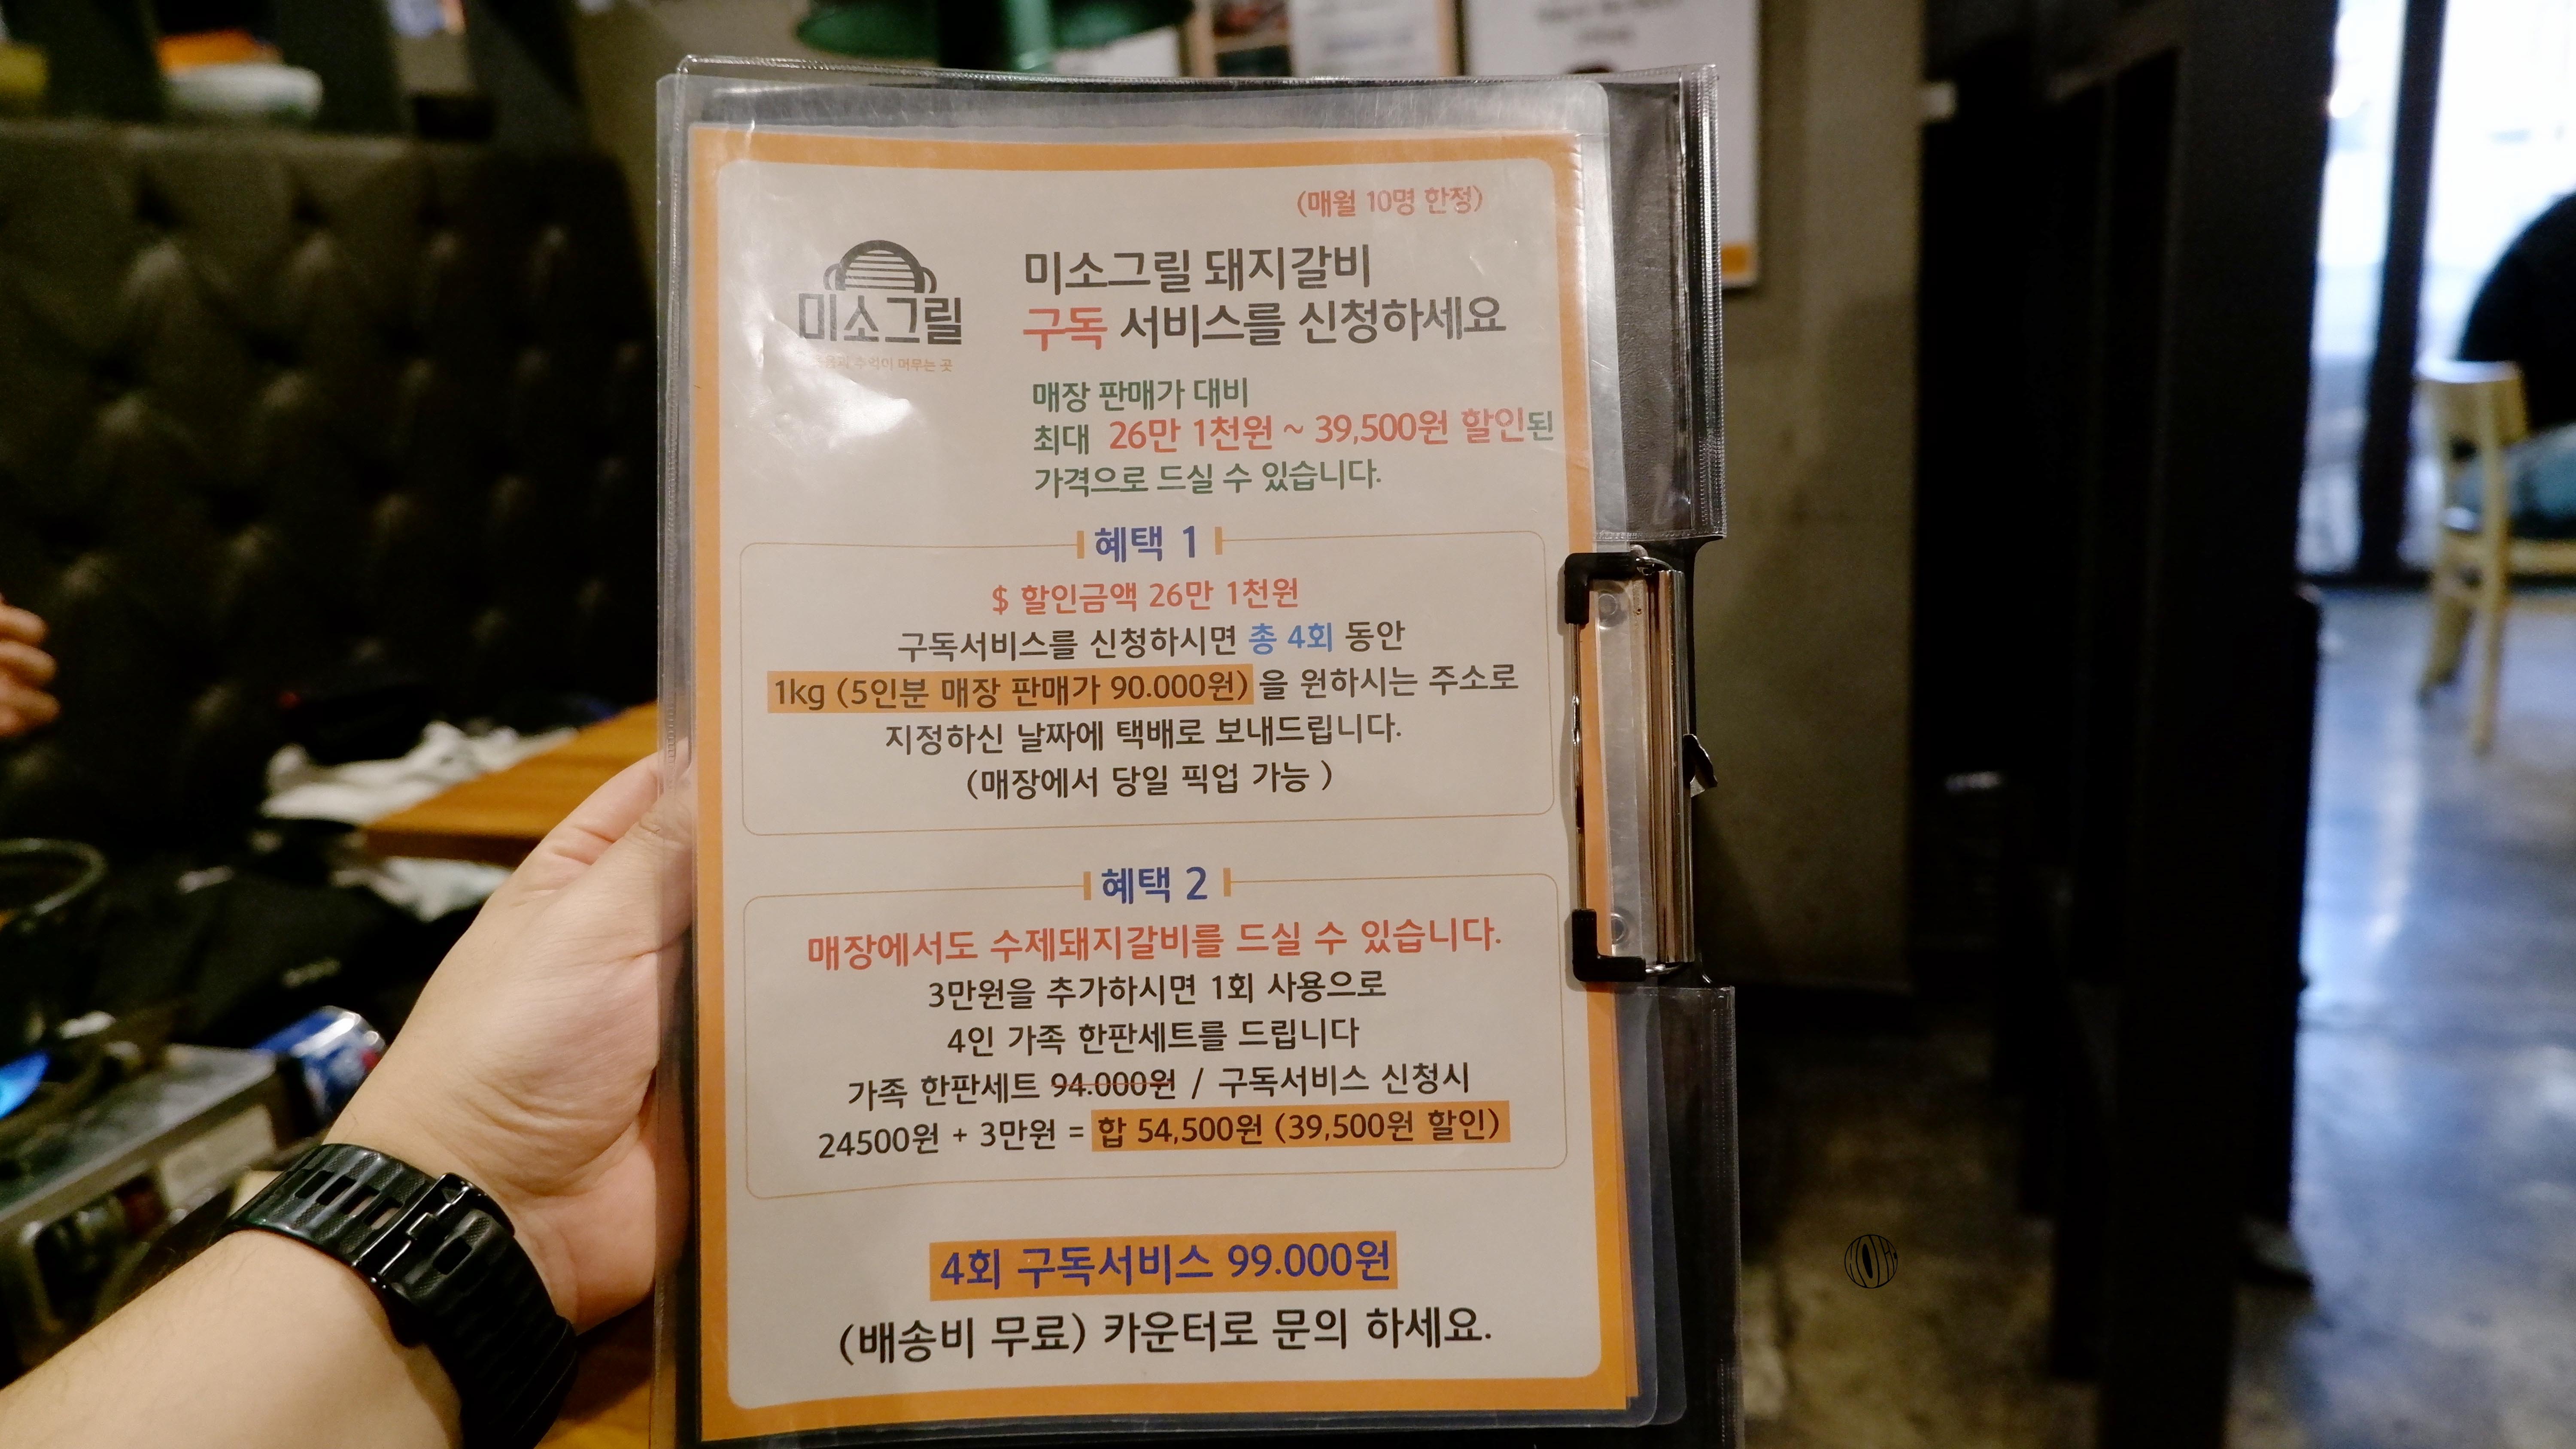 (매월 10명 한정)
미소그릴
추억이 머무는 곳
미소그릴 돼지갈비
구독 서비스를 신청하세요
매장 판매가 대비
최대 26만 1천원 ~ 39,500원 할인된
가격으로 드실 수 있습니다.
혜택 1
$ 할인금액 26만 1천원
구독서비스를 신청하시면 총 4회 동안
1kg (5인분 매장 판매가 90.000원) 을 원하시는 주소로
지정하신 날짜에 택배로 보내드립니다.
(매장에서 당일 픽업 가능 )
혜택 2
매장에서도 수제돼지갈비를 드실 수 있습니다.
3만원을 추가하시면 1회 사용으로
4인 가족 한판세트를 드립니다
가족 한판세트 94.000원 / 구독서비스 신청시
24500원 + 3만원 = 합 54,500원 (39,500원 할인)
4회 구독서비스 99.000원
(배송비 무료) 카운터로 문의 하세요.